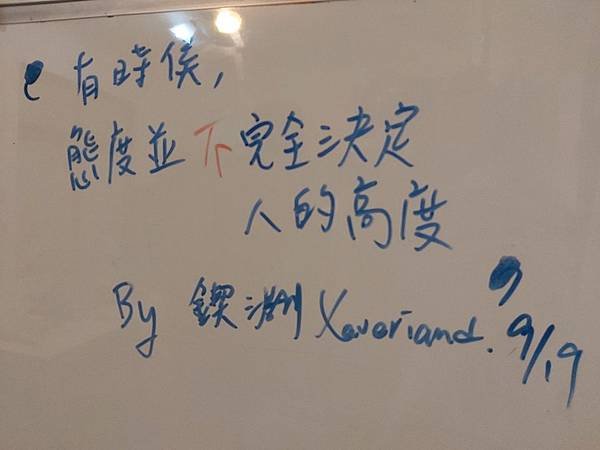 有時侯,
態度並不完全決定
人的高度
By 鍥渊 Xaveriand. 9/19